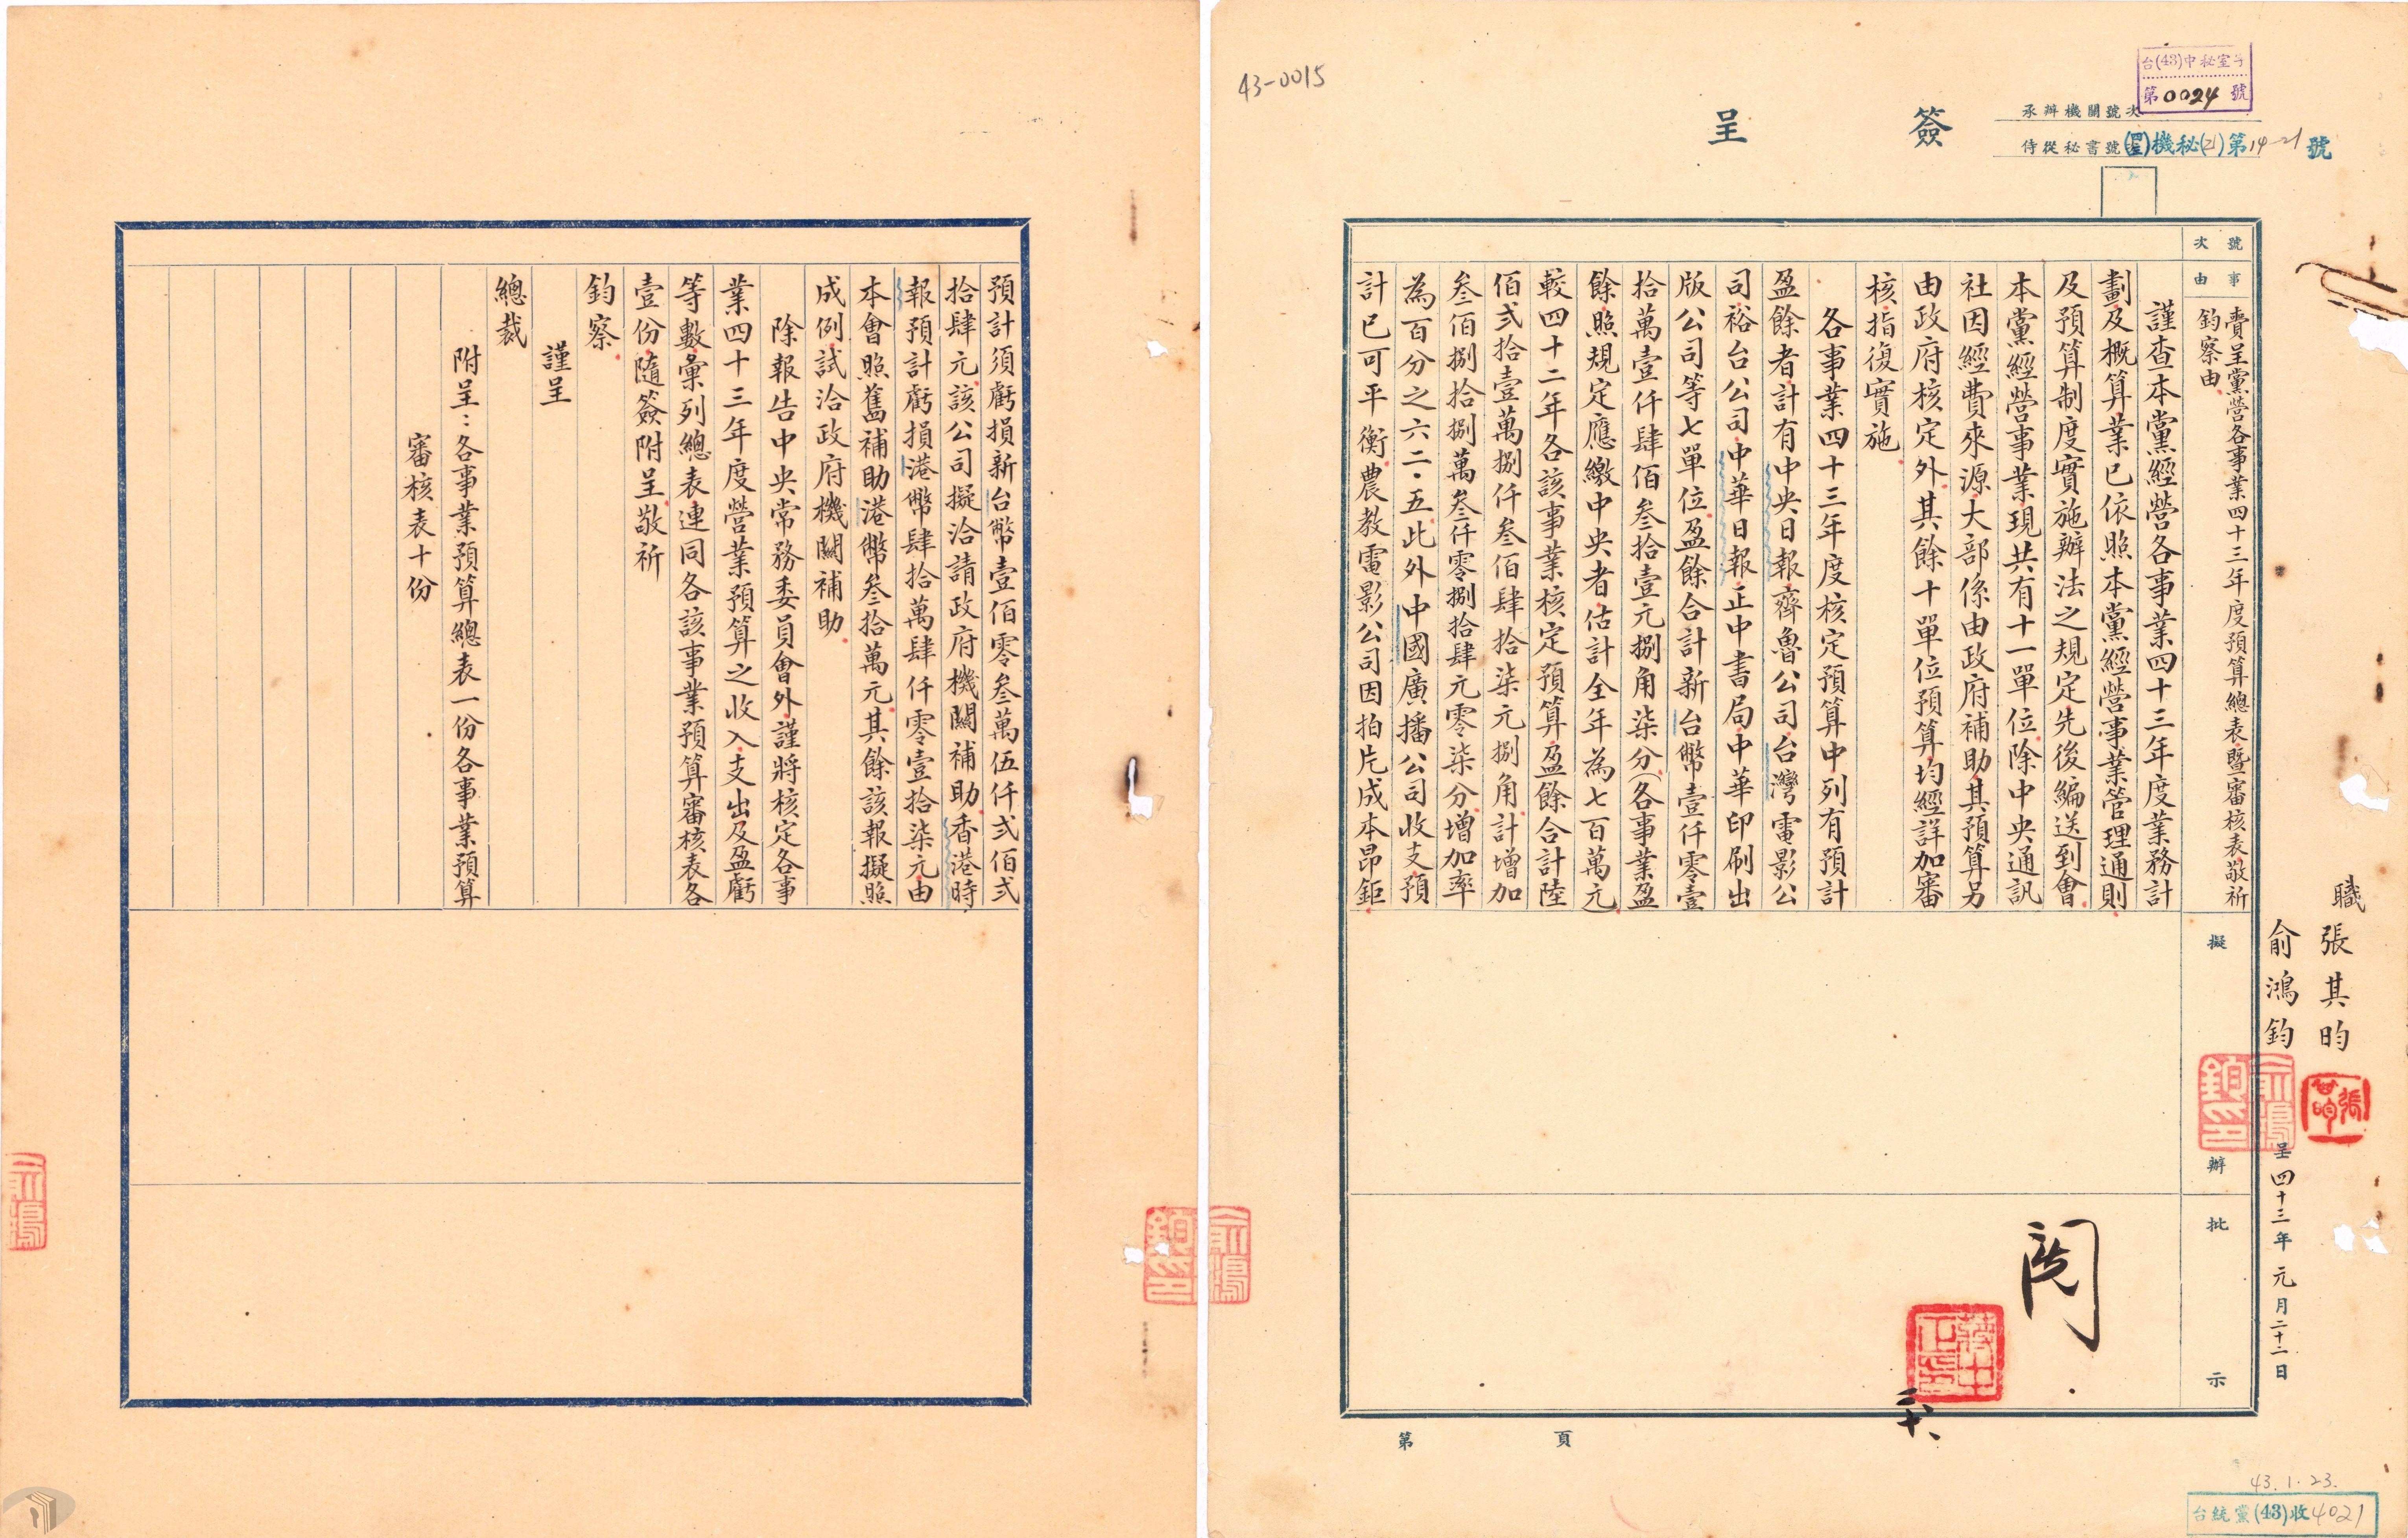 43-0015
台(43)中秘室字
第0024號
簽呈
承辦機關號次
侍從秘書號
機秘(21)第14-21號
號次
事由
賷呈黨營各事業四十三年度預算總表暨審核表敬祈
鈞察由
擬辦
批示
職張其昀
俞鴻鈞
呈四十三年元月二十二日
謹查本黨經營各事業四十三年度業務計
劃及概算業已依照本黨經營事業管理通則
及預算制度實施辦法之規定先後編送到會
本黨經營事業現共有十一單位除中央通訊
社因經費來源大部係由政府補助其預算另
由政府核定外其餘十單位預算均經詳加審
核指復實施
各事業四十三年度核定預算中列有預計
盈餘者計有中央日報齊魯公司台灣電影公
司裕台公司中華日報正中書局中華印刷出
版公司等七單位盈餘合計新台幣壹仟零壹
拾萬壹仟肆佰叁拾壹元捌角柒分(各事業盈
餘照規定應繳中央者估計全年為七百萬元
較四十二年各該事業核定預算盈餘合計陸
佰弍拾壹萬捌仟叁佰肆拾柒元捌角計增加
叁佰捌拾捌萬叁仟零捌拾肆元零柒分增加率
為百分之六二·五此外中國廣播公司收支預
計已可平衡農教電影公司因拍片成本昂鉅
閱
三十、
第 頁
43.1.23.
台統黨(43)收4021
預計須虧損新台幣壹佰零叁萬伍仟弍佰弍
拾肆元該公司擬洽請政府機關補助香港時
報預計虧損港幣肆拾萬肆仟零壹拾柒元由
本會照舊補助港幣叁拾萬元其餘該報擬照
成例試洽政府機關補助
除報告中央常務委員會外謹將核定各事
業四十三年度營業預算之收入支出及盈虧
等數彙列總表連同各該事業預算審核表各
壹份隨簽附呈敬祈
鈞察
謹呈
總裁
附呈：各事業預算總表一份各事業預算
審核表十份